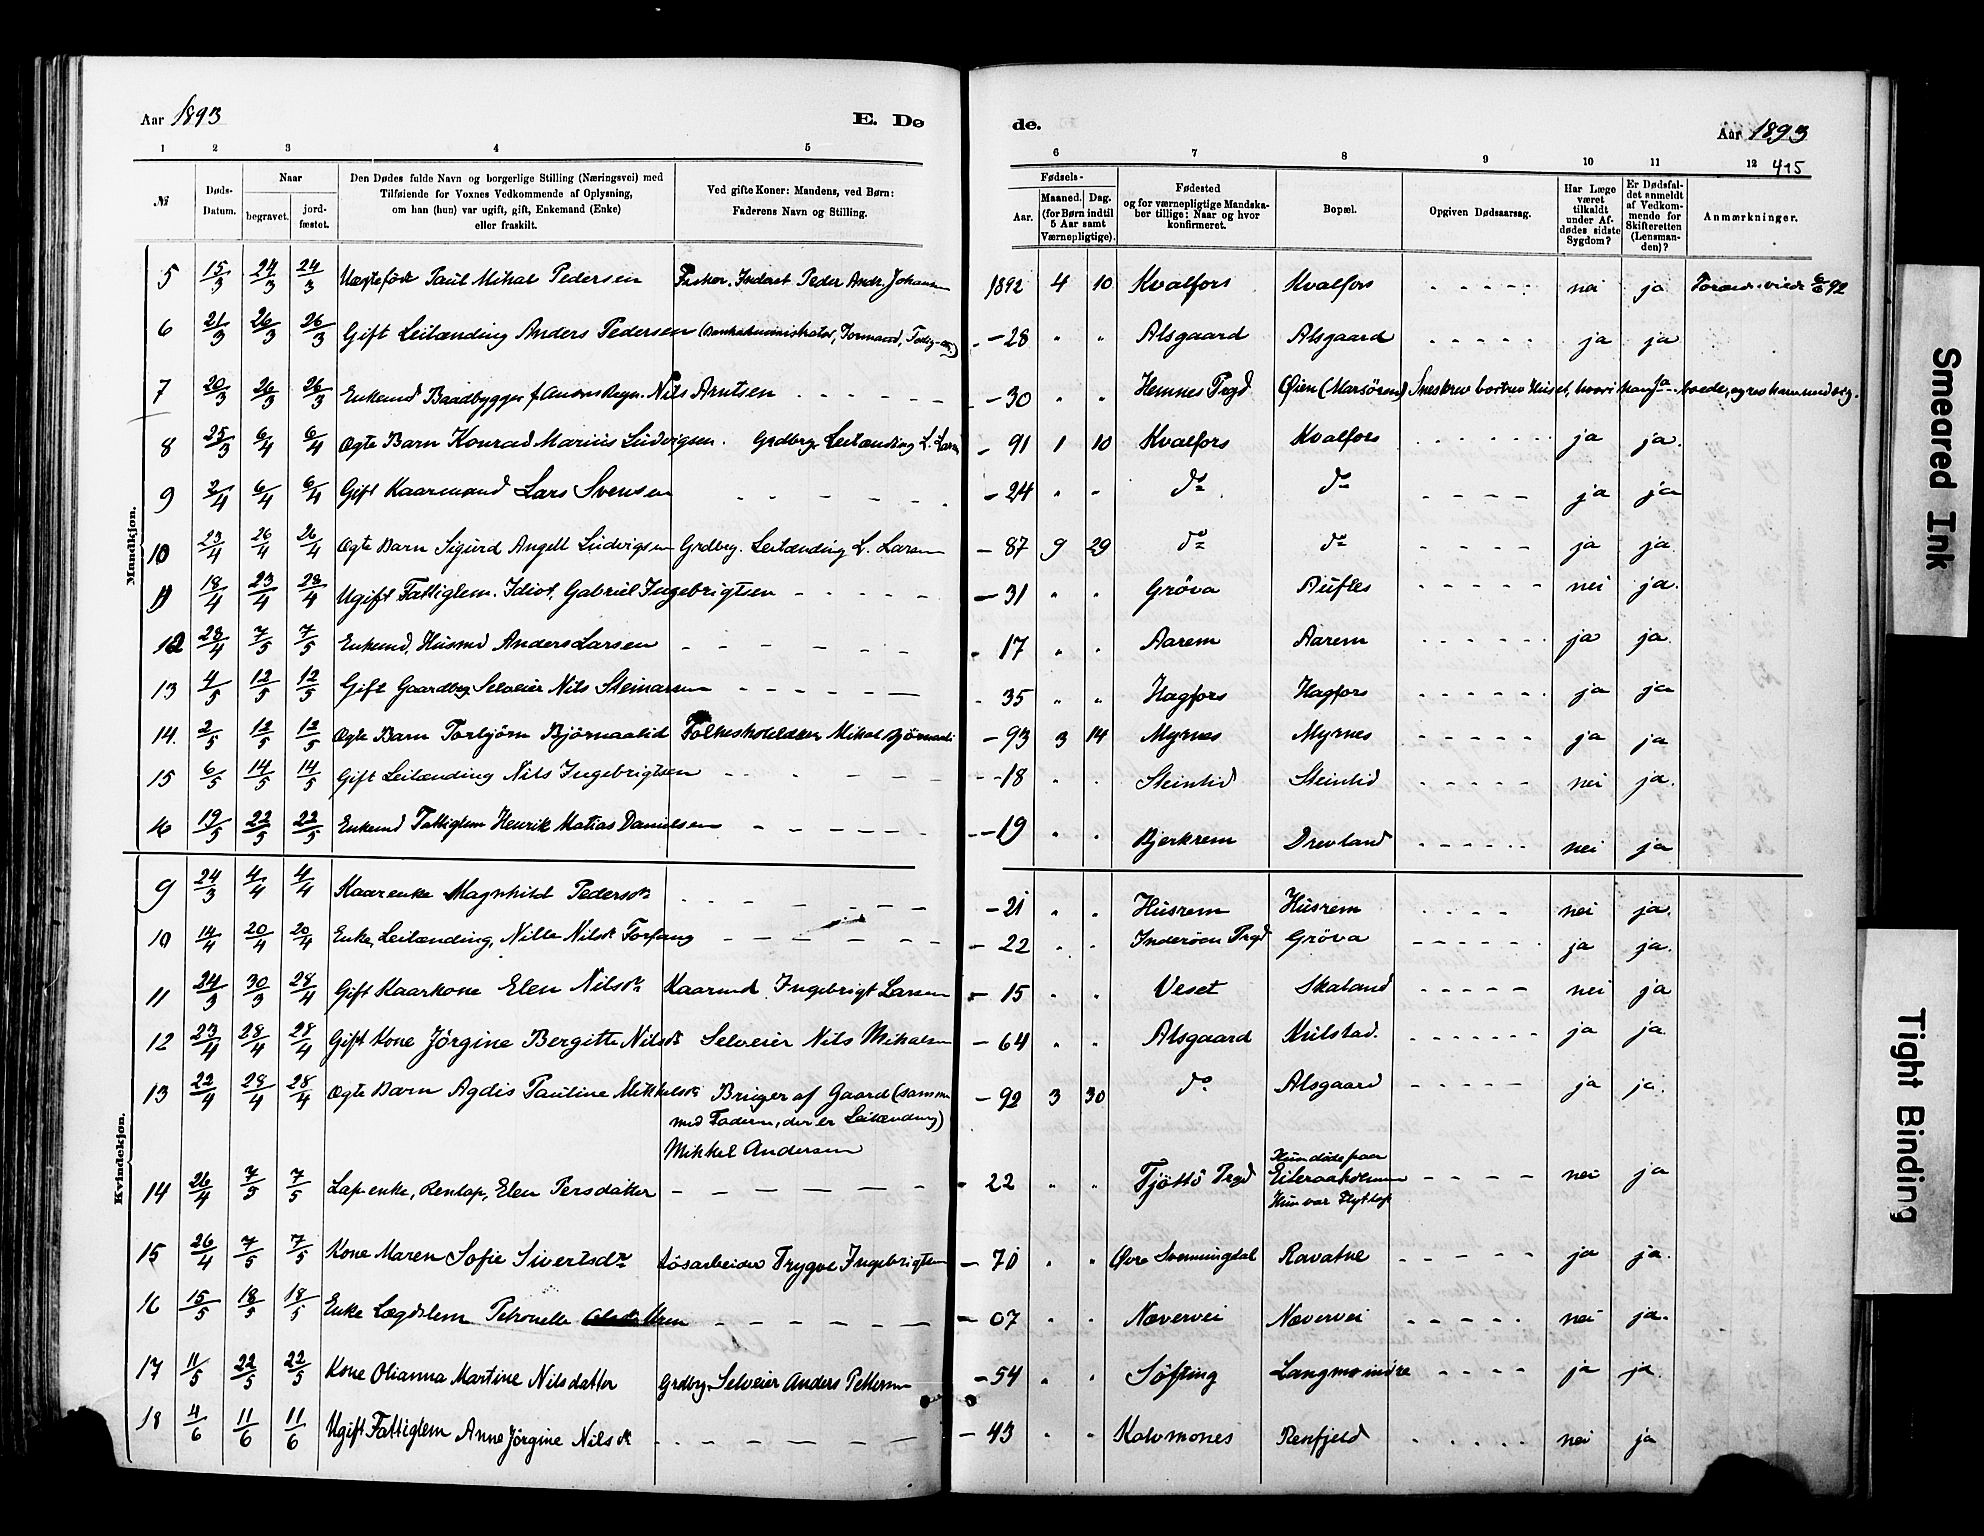 Aar 1893
E. Dø
de.
Aar 1893
415
1 2 3 4 5 6 7 8 9 10 11 12
№
Døds-Datum.
Naar
begravet.
jord-fæstet.
Den Dødes fulde Navn og borgerlige Stilling (Næringsvei) med
Tilføiende for Voxnes Vedkommende af Oplysning,
om han (hun) var ugift, gift, Enkemand (Enke)
eller fraskilt.
Ved gifte Koner: Mandens, ved Børn:
Faderens Navn og Stilling.
Fødsels-
Aar.
Maaned. Dag.
(for Børn indtil
5 Aar samt
Værnepligtige).
Fødested
og for værnepligtige Mandska-
ber tillige: Naar og hvor
konfirmeret.
Bopæl.
Opgiven Dødsaarsag.
Har Læge
været
tilkaldt
under Af-
dødes sidste
Sygdom?
Er Dødsfal-
det anmeldt
af Vedkom-
mende for
Skifteretten
(Lensman-
den)?
Anmærkninger.
Mandkjøn.
5 15/3 24/3 24/3 Uægtefødt Paul Mikal Pedersen Fisker. Inderst Peder Andr. Johansen 1892 4 10 Kvalfors Kvalfors - - - - - nei ja
6 21/3 26/3 26/3 Gift Leilænding Anders Pedersen - 28 " " Alsgaard Alsgaard - - - - - ja ja
7 20/3 26/3 26/3 Enkemd Baadbygger Nils Arntsen - - - - - - 30 " " Hemnes Prgd Øien (Marsören) Sneskred bortrev Huset, hvori han ja boede, og rev ham med sig.
8 25/3 6/4 6/4 Ægte Barn Konrad Marius Ludvigsen. Grdbrg. Leilænding L. Larsen - 91 1 10 Kvalfors Kvalfors - - - - - - ja ja.
9 2/4 6/4 6/4 Gift Kaarmand Lars Svensen - - - - - - 24 " " do do - - - - ja ja
10 23/4 26/4 26/4 Ægte Barn Sigurd Angell Ludvigsen Grdbrg. Leilænding L. Larsen - 87 9 29 do do - - - - - ja ja
11 18/4 23/4 23/4 Ugift Fattiglem. Idiot, Gabriel Ingebrigtsen - - - - - 31 " " Gröva Aufles - - - - - nei ja.
12 23/4 7/5 7/5 Enkemd. Husmd Anders Larsen - - - - - - - 17 " " Aarem Aarem - - - - - - ja ja.
13 4/5 12/5 12/5 Gift Gaardbrg Selveier Nils Steinarsen - - - - - - - 35 " " Hagfors Hagfors - - - - - ja ja
14. 2/5 12/5 12/5 Ægte Barn Torbjörn Björnaalid Folkeskolelærer Mikal Björnaali - 93 3 14 Myrnes Myrnes - - - - - ja ja
15 6/5 14/5 14/5 Gift Leilænding Nils Ingebrigtsen - - - - - - - 18 " " Steinlid Steinlid - - - - - nei ja.
16 19/5 22/5 22/5 Enkemd Fattiglem Henrik Matias Danielsen - - - - - - - 19 " " Bjerkrem Drevland - - - - - - nei ja
Kvindekjøn.
9 24/3 4/4 4/4 Kaarenke Magnhild Pedersdt - - - - - - - 21 " " Husrem Husrem - - - - nei ja.
10 14/4 20/4 20/4 Enke, Leilænding, Nille Nilsdt Forfang - - - - - - 22 " " Inderöen Prgd Gröva - - - - - - ja ja.
11 24/3 30/3 28/4 Gift Kaarkone Elen Nilsdt Kaarmd. Ingebrigt Larsen - 15 " " Veset Skaland - - - - - nei ja
12 23/4 28/4 28/4 Gift Kone Jörgine Bergitte Nilsdt Selveier Nils Mikalsen - 64 " " Alsgaard Kulstad. - - - - - - ja ja.
13 22/4 28/4 28/4 Ægte Barn Agdis Pauline Mikkelsdt Bruger af Gaard (sammen - 92 3 30 do Alsgaard - - - - - ja ja.
med Faderen, der er Leilænding)
Mikkel Andersen
14 26/4 7/5 7/5 Lapenke, Renlap, Elen Persdatter - - - - - - 22 " " Tjöttö Prgd Hun döde paa
Eiteraaholmen - - - nei ja
Hun var Flytlap
15 26/4 7/5 7/5 Kone Maren Sofie Sivertsdtr Lösarbeider Trygve Ingebrigtsen - 70 " " Øvre Svenningdal Ravatne - - - - - ja ja.
16 15/5 18/5 18/5 Enke Lægdslem Petronelle Olsen - - - - - - - 07 " " Nævervei Nævervei - - - - - nei ja.
17 11/5 22/5 22/5 Kone Olianna Martine Nilsdatter Grdbrg. Selveier Anders Pettersen - 54 " " Söfting Langmo indre - - - - ja ja.
18 4/6 11/6 11/6 Ugift Fattiglem Anne Jörgine Nilsdt - - - - - - - 43 " " Kalvmones Renfjeld - - - - - nei ja
Smeared Ink
Tight Binding